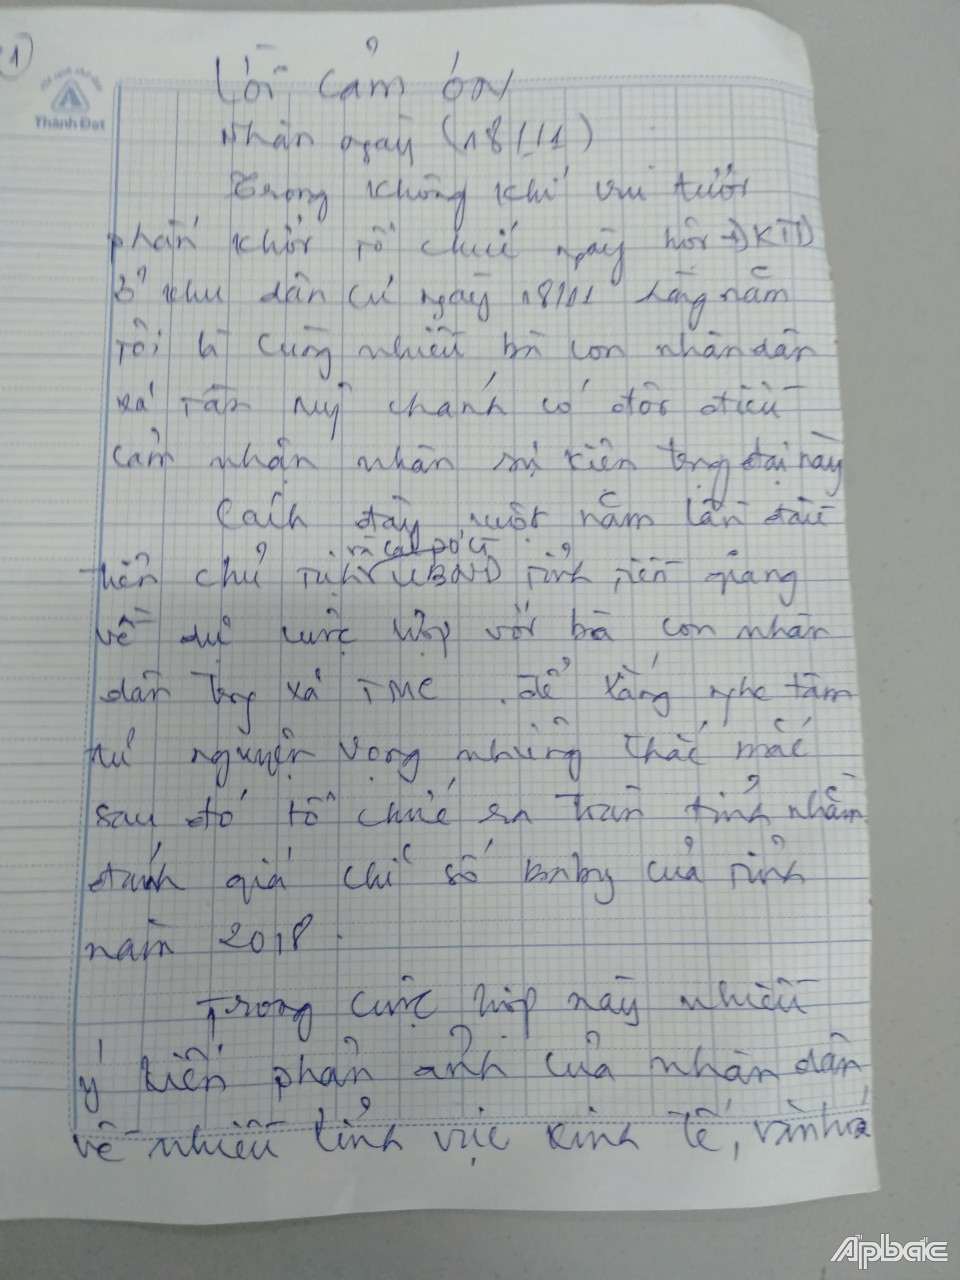 1
Thành Đạt
Lời cảm ơn
Nhân ngày (18/11)
Trong không khí vui tươi
phấn khởi tổ chức ngày hội ĐKTD
ở khu dân cư ngày 18/11 hằng năm
Tôi là cùng nhiều bà con nhân dân
xã Tân Mỹ Chánh có đôi điều
cảm nhận nhân sự kiện trọng đại này
Cách đây một năm lần đầu
và các sở
tiên chủ tịch UBND Tỉnh Tiền giang
về dự cuộc họp với bà con nhân
dân trong xã TMC. để lắng nghe tâm
tư nguyện vọng những thắc mắc
sau đó tổ chức toàn tỉnh nhằm
đánh giá chỉ số của Tỉnh
năm 2018.
Trong cuộc họp này nhiều
ý kiến phản ảnh của nhân dân
về nhiều lĩnh vực kinh tế, văn hóa
Apbac